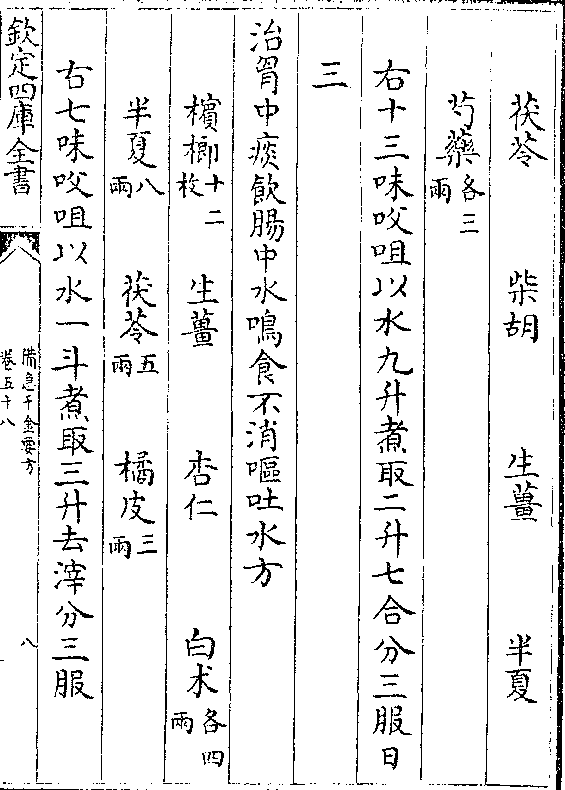 茯苓　柴胡　生薑　半夏
芍藥各三兩
右十三味㕮咀以水九升煮取二升七合分三服日
三
治胷中痰飲腸中水鳴食不消嘔吐水方
檳榔十二枚　生薑　杏仁　白术各四兩
半夏八兩　茯苓五兩　橘皮三兩
右七味㕮咀以水一斗煮取三升去滓分三服
欽定四庫全書
備急千金要方
卷五十八
八